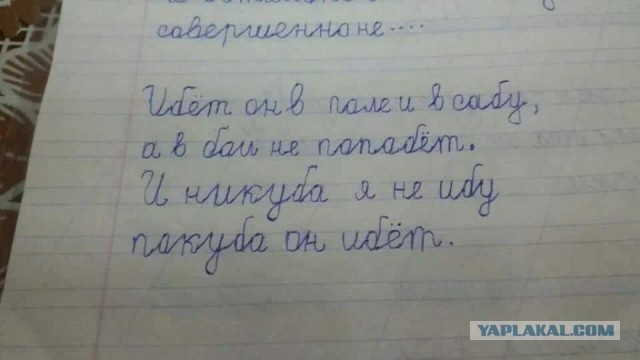 совершенно не....
Ибёт он в поле и в сабу,
а в бои не попабёт.
И никуба я не ибу
покуба он ибёт.
YAPLAKAL.COM